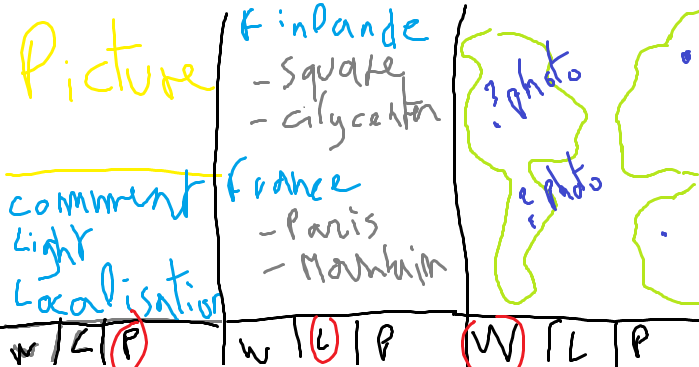 Picture
comment
Light
Localisation
W L P
Finlande
- square
- citycenter
France
- Paris
- Mountain
W L P
3 photo
2 photo
W L P